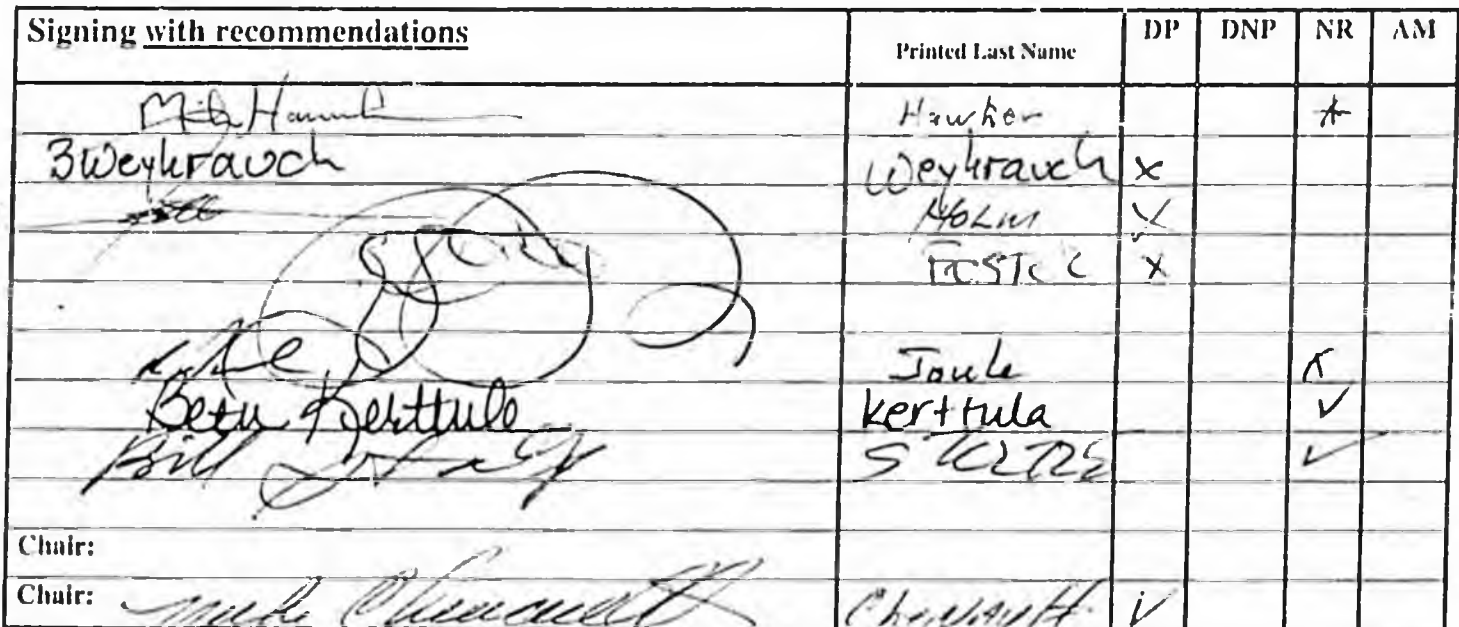 Signing with recommendations Printed Last Name DP DNP NR AM
Mike Hawker
BWeyhrauch Weyhrauch x
HOLM ✓
FOSTER x
Joule
Beth Kerttula Kerttula ✓
Bill STOLTZE ✓
Chair:
Chair: Mike Chenault Chenault ✓